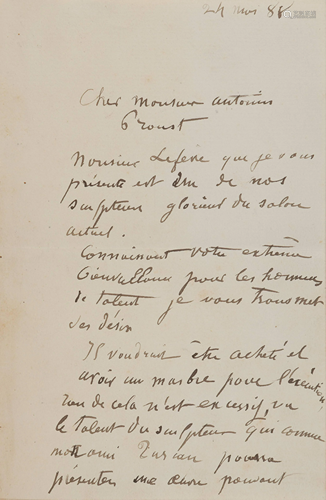 24 mars 88
Cher Monsieur Antonin
Proust
Monsieur Lefevre que je vous
présente est un de nos
sculpteurs glorieux du salon
actuel.
Connaissant votre extrême
bienveillance pour les hommes
de talent je vous transmet
ses désirs
Il voudrait être acheté et
avoir un marbre pour l'exécution
rien de cela n'est excessif, vu
le talent du sculpteur qui comme
notre ami Turcan pourra
présenter une œuvre pouvant